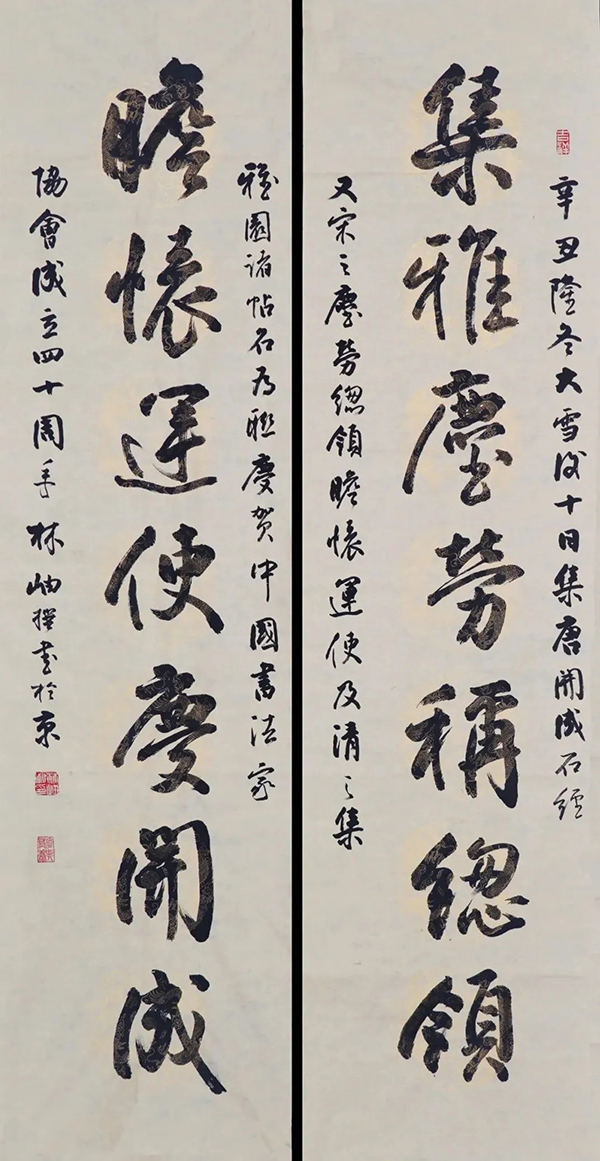 辛丑隆冬大雪後十日集唐開成石經
集雅塵勞稱緫領
又宋之塵勞緫領瞻懷運使及清之集
雅園諸帖名為聯慶賀中國書法家
瞻懷運使慶開成
協會成立四十周年林岫撰書於京